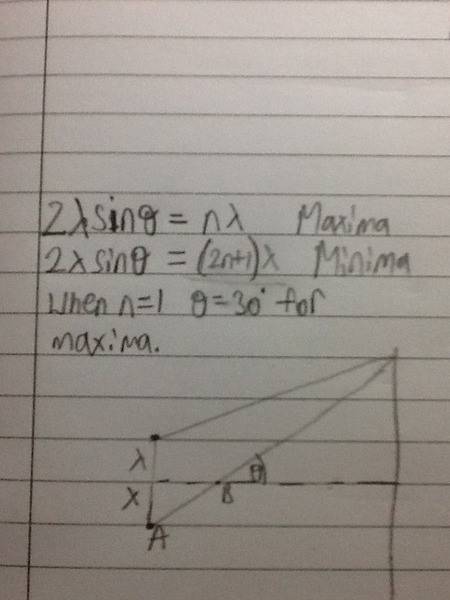 2λsinθ = nλ Maxima
2λsinθ = (2n+1)λ Minima
when n=1 θ=30° for
maxima.
λ
θ
λ
B
A